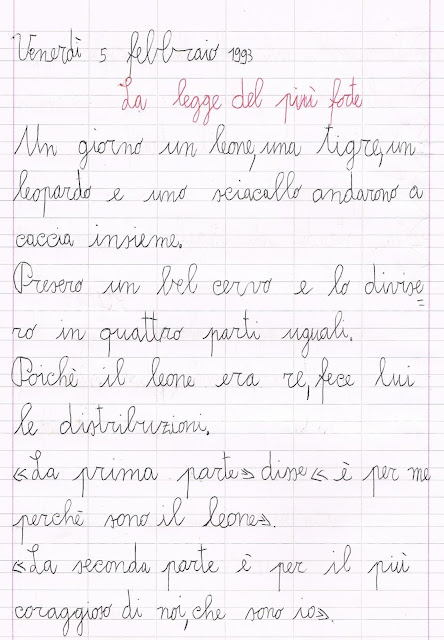 Venerdì 5 febbraio 1993
La legge del più forte
Un giorno un leone, una tigre, un
leopardo e uno sciacallo andarono a
caccia insieme.
Presero un bel cervo e lo divise
ro in quattro parti uguali.
Poichè il leone era re, fece lui
le distribuzioni.
«La prima parte» disse « è per me
perchè sono il leone».
«La seconda parte è per il più
coraggioso di noi, che sono io».